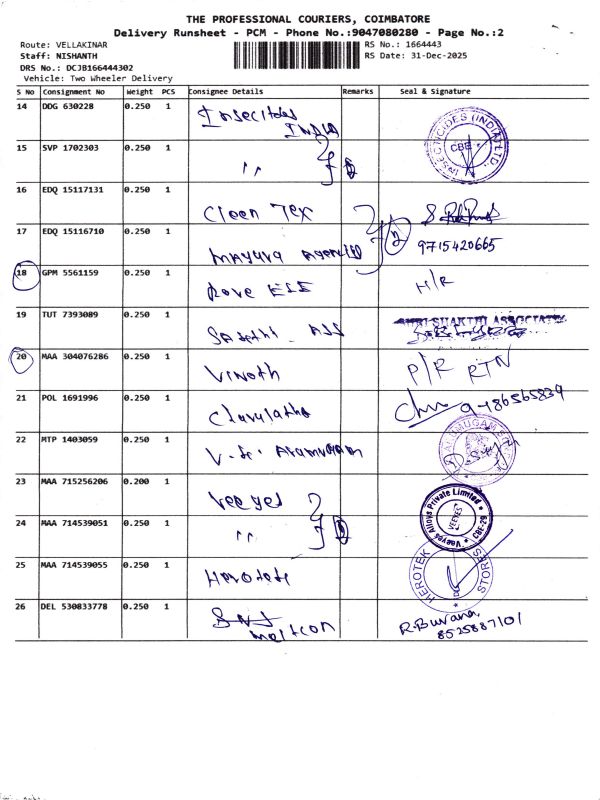 THE PROFESSIONAL COURIERS, COIMBATORE
Delivery Runsheet - PCM - Phone No.:9047080280 - Page No.:2
Route: VELLAKINAR
RS No.: 1664443
Staff: NISHANTH
RS Date: 31-Dec-2025
DRS No.: DCJB166444302
Vehicle: Two Wheeler Delivery
S No Consignment No Weight PCS Consignee Details Remarks Seal & Signature
14 DDG 630228 0.250 1 Insecitdes
INDIA
INSECTICIDES (INDIA) LTD. CBE
15 SVP 1702303 0.250 1 ,,
16 EDQ 15117131 0.250 1 Cleen Tex
17 EDQ 15116710 0.250 1 Mayura
9715420665
18 GPM 5561159 0.250 1 Rove
H/R
19 TUT 7393089 0.250 1 Ass
SHRI SHAKTHI ASSOCIATES
20 MAA 304076286 0.250 1 Vinoth
P/R RTN
21 POL 1691996 0.250 1
22 MTP 1403059 0.250 1 Arumugam
23 MAA 715256206 0.200 1 Veeyes
Veeyes Alloys Private Limited CBE-29
VEEYES
24 MAA 714539051 0.250 1 ,,
25 MAA 714539055 0.250 1
HEROTEK STORES
26 DEL 530833778 0.250 1
Meltcon
R. Buvana
8525887101